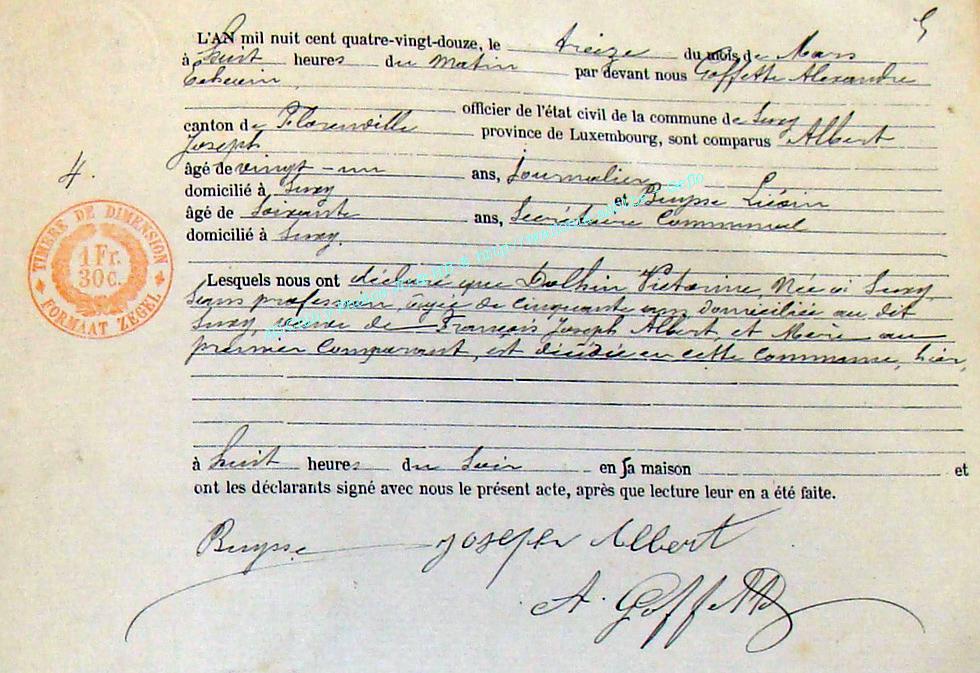 5
L'AN mil nuit cent quatre-vingt-douze, le treize du mois de Mars
à huit heures du matin par devant nous Goffette Alexandre
Echevin,
officier de l'état civil de la commune de Suxy
canton de Florenville province de Luxembourg, sont comparus Albert
Joseph
4.
âgé de vingt-un ans, Journalier
domicilié à Suxy et Buysse Liévin
âgé de Soixante ans, Secrétaire Communal
domicilié à Suxy.
TIMBRE DE DIMENSION
1 Fr.
30 c.
FORMAAT ZEGEL
Lesquels nous ont déclaré que Dolhin Victorine, Née à Suxy,
Sans profession, âgée de cinquante ans, domiciliée au dit
Suxy, veuve de François Joseph Albert, et Mère au
premier Comparant, est décédée en cette commune, hier,
à huit heures du Soir en sa maison et
ont les déclarants signé avec nous le présent acte, après que lecture leur en a été faite.
Buysse Joseph Albert
A. Goffette